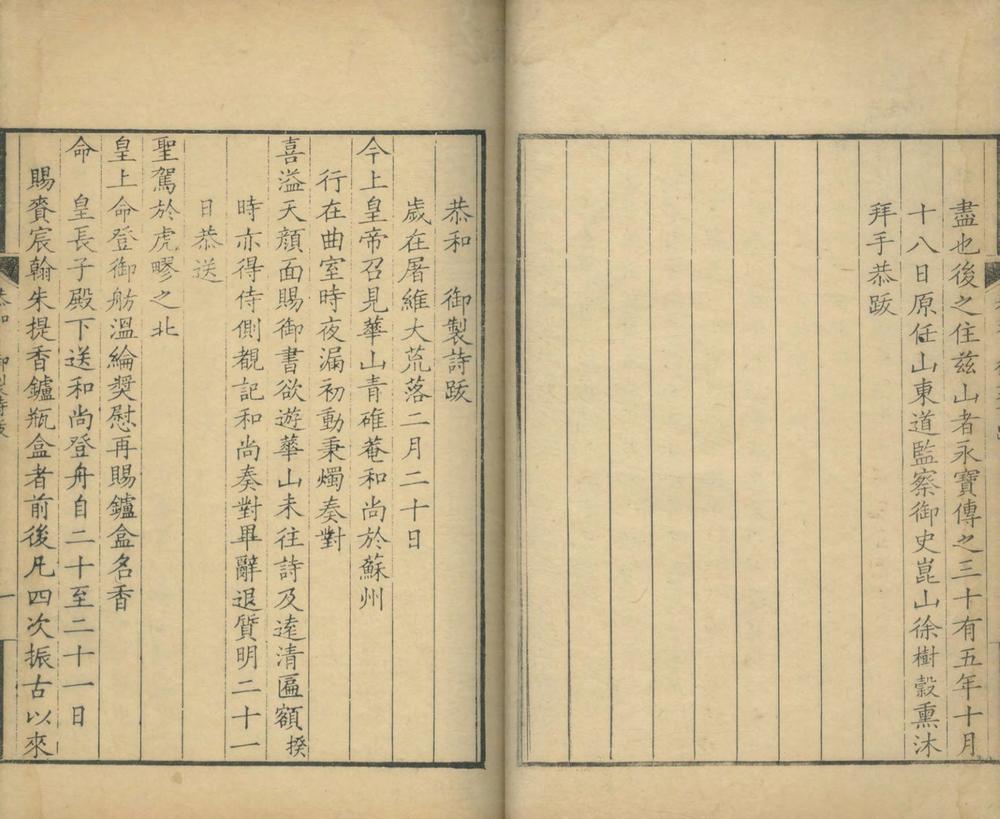 盡也後之住茲山者永寶傳之三十有五年十月
十八日原任山東道監察御史崑山徐樹穀熏沐
拜手恭跋
恭和　御製詩跋
歲在屠維大荒落二月二十日
今上皇帝召見華山青碓菴和尚於蘇州
行在曲室時夜漏初動秉燭奏對
喜溢天顏面賜御書欲遊華山未往詩及遠清匾額揆
時亦得侍側覩記和尚奏對畢辭退質明二十一
日恭送
聖駕於虎疁之北
皇上命登御舫溫綸獎慰再賜鑪盒名香
命　皇長子殿下送和尚登舟自二十至二十一日
賜賚宸翰朱提香鑪瓶盒者前後凡四次振古以來
恭和　御製詩跋
一